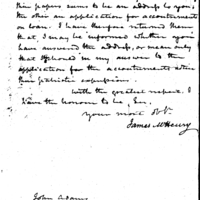 their papers seems to be an address to you;
the other an application for accoutrements
on loan. I have therefore returned them
that, I may be informed whether you
have answered the address, or mean only
that I should in my answer to the
application for the accoutrements notice
their patriotic expressions.
With the greatest respect, I
have the honour to be, Sir,
your most
James McHenry
John Adams